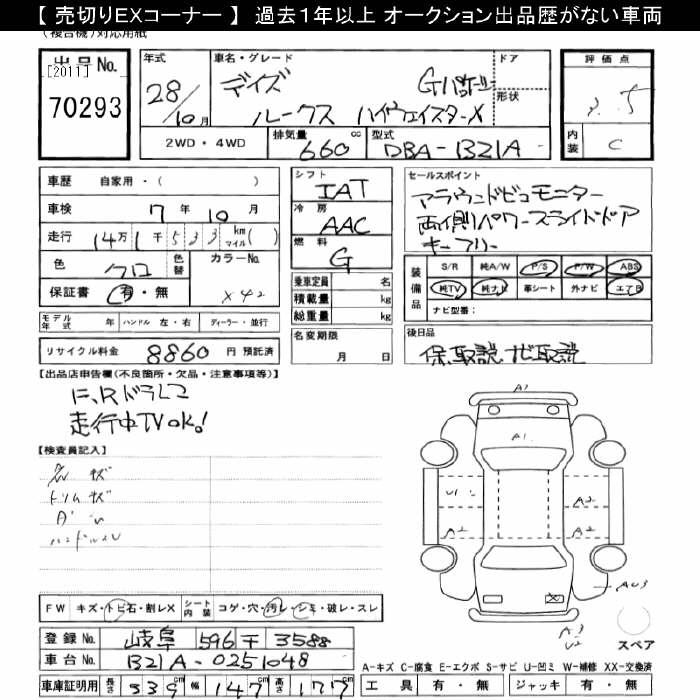 【 売切りEXコーナー 】 過去1年以上 オークション出品歴がない車両
(複合機)対応用紙
出品No. 年式 車名・グレード ドア 評価点
[2011] 28 デイズ Gパッケージ
70293 10月 ルークス ハイウェイスターX 形状 3.5
2WD・4WD 排気量 660 cc 型式 DBA-B21A 内装 C
車歴 自家用・( ) シフト IAT セールスポイント
車検 7年 10月 冷房 AAC アラウンドビューモニター
走行 14万1千533 km マイル( ) 燃料 G 両側パワースライドドア
キーフリー
色 クロ 色替 カラーNo. X42 乗車定員 名 装備品 S/R 純A/W P/S P/W ABS
保証書 有・無 積載量 kg 純TV 純ナビ 革シート 外ナビ エアB
総重量 kg ナビ型番:
モデル年式 年 ハンドル 左・右 ディーラー・並行 名変期限 月 日 後日品
リサイクル料金 8860 円 預託済 保、取説、ナビ取説
【出品店申告欄(不良箇所・欠品・注意事項等)】
F、Rドラレコ
走行中TVOK!
A1
A1
【検査員記入】
各キズ
トリムキズ
U1 A2
A2 A2
ハンドルスレ
AU3
FW キズ・トビ石・割レX シート内装 コゲ・穴・汚レ・シミ・破レ・スレ
登録No. 岐阜 596 す 3588 A3
U2 スペア
車台No. B21A-0251048 A-キズ C-腐食 E-エクボ S-サビ U-凹ミ W-補修 XX-交換済
車庫証明用 長さ 339cm 幅 147cm 高さ 177cm 工具 有・無 ジャッキ 有・無